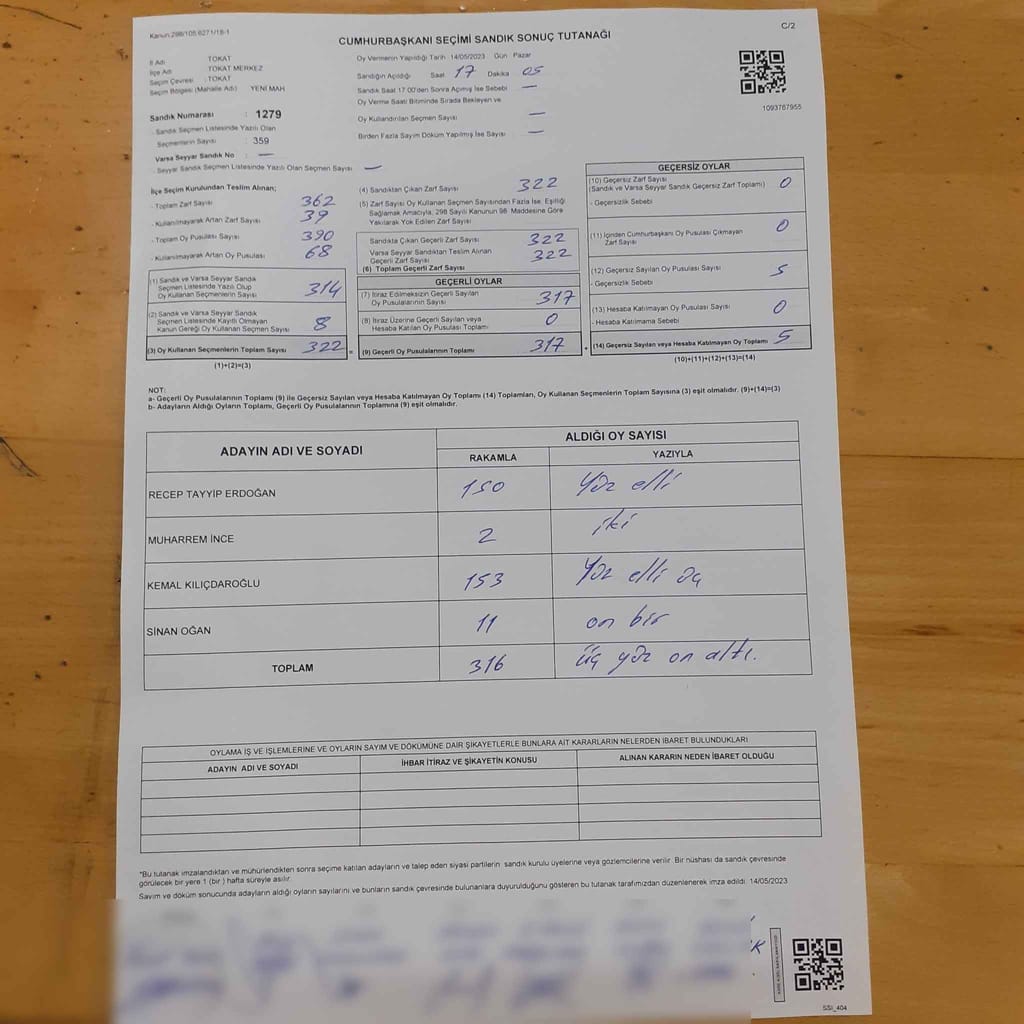 Kanun:298/105 6271/18-1
C/2
CUMHURBAŞKANI SEÇİMİ SANDIK SONUÇ TUTANAĞI
İl Adı TOKAT
İlçe Adı TOKAT MERKEZ
Seçim Çevresi : TOKAT
Seçim Bölgesi (Mahalle Adı) YENİ MAH
Sandık Numarası : 1279
- Sandık Seçmen Listesinde Yazılı Olan
Seçmenlerin Sayısı : 359
Varsa Seyyar Sandık No : —
- Seyyar Sandık Seçmen Listesinde Yazılı Olan Seçmen Sayısı —
Oy Vermenin Yapıldığı Tarih :14/05/2023 Gün : Pazar
Sandığın Açıldığı Saat 17 Dakika 05
Sandık Saat 17:00'den Sonra Açılmış İse Sebebi —
Oy Verme Saati Bitiminde Sırada Bekleyen ve
Oy Kullandırılan Seçmen Sayısı —
Birden Fazla Sayım Döküm Yapılmış İse Sayısı —
1093767955
İlçe Seçim Kurulundan Teslim Alınan;
- Toplam Zarf Sayısı 362
- Kullanılmayarak Artan Zarf Sayısı 39
- Toplam Oy Pusulası Sayısı 390
- Kullanılmayarak Artan Oy Pusulası 68
(1) Sandık ve Varsa Seyyar Sandık
Seçmen Listesinde Yazılı Olup
Oy Kullanan Seçmenlerin Sayısı 314
(2) Sandık ve Varsa Seyyar Sandık
Seçmen Listesinde Kayıtlı Olmayan
Kanun Gereği Oy Kullanan Seçmen Sayısı 8
(3) Oy Kullanan Seçmenlerin Toplam Sayısı 322 =
(1)+(2)=(3)
(4) Sandıktan Çıkan Zarf Sayısı 322
(5) Zarf Sayısı Oy Kullanan Seçmen Sayısından Fazla İse, Eşitliği
Sağlamak Amacıyla, 298 Sayılı Kanunun 98. Maddesine Göre
Yakılarak Yok Edilen Zarf Sayısı
Sandıkta Çıkan Geçerli Zarf Sayısı 322
Varsa Seyyar Sandıktan Teslim Alınan
Geçerli Zarf Sayısı 322
(6) Toplam Geçerli Zarf Sayısı
GEÇERLİ OYLAR
(7) İtiraz Edilmeksizin Geçerli Sayılan
Oy Pusulalarının Sayısı 317
(8) İtiraz Üzerine Geçerli Sayılan veya
Hesaba Katılan Oy Pusulası Toplamı 0
(9) Geçerli Oy Pusulalarının Toplamı 317 +
GEÇERSİZ OYLAR
(10) Geçersiz Zarf Sayısı
(Sandık ve Varsa Seyyar Sandık Geçersiz Zarf Toplamı) 0
- Geçersizlik Sebebi
(11) İçinden Cumhurbaşkanı Oy Pusulası Çıkmayan
Zarf Sayısı 0
(12) Geçersiz Sayılan Oy Pusulası Sayısı 5
- Geçersizlik Sebebi
(13) Hesaba Katılmayan Oy Pusulası Sayısı 0
- Hesaba Katılmama Sebebi
(14) Geçersiz Sayılan veya Hesaba Katılmayan Oy Toplamı 5
(10)+(11)+(12)+(13)=(14)
NOT:
a- Geçerli Oy Pusulalarının Toplamı (9) ile Geçersiz Sayılan veya Hesaba Katılmayan Oy Toplamı (14) Toplamları, Oy Kullanan Seçmenlerin Toplam Sayısına (3) eşit olmalıdır. (9)+(14)=(3)
b- Adayların Aldığı Oyların Toplamı, Geçerli Oy Pusulalarının Toplamına (9) eşit olmalıdır.
ADAYIN ADI VE SOYADI ALDIĞI OY SAYISI
RAKAMLA YAZIYLA
RECEP TAYYİP ERDOĞAN 150 Yüz elli
MUHARREM İNCE 2 iki
KEMAL KILIÇDAROĞLU 153 Yüz elli üç
SİNAN OĞAN 11 on bir
TOPLAM 316 üç yüz on altı.
OYLAMA İŞ VE İŞLEMLERİNE VE OYLARIN SAYIM VE DÖKÜMÜNE DAİR ŞİKAYETLERLE BUNLARA AİT KARARLARIN NELERDEN İBARET BULUNDUKLARI
ADAYIN ADI VE SOYADI İHBAR İTİRAZ VE ŞİKAYETİN KONUSU ALINAN KARARIN NEDEN İBARET OLDUĞU
*Bu tutanak imzalandıktan ve mühürlendikten sonra seçime katılan adayların ve talep eden siyasi partilerin sandık kurulu üyelerine veya gözlemcilerine verilir. Bir nüshası da sandık çevresinde
görülecek bir yere 1 (bir ) hafta süreyle asılır.
Sayım ve döküm sonucunda adayların aldığı oyların sayılarını ve bunların sandık çevresinde bulunanlara duyurulduğunu gösteren bu tutanak tarafımızdan düzenlenerek imza edildi. 14/05/2023
SSI_404